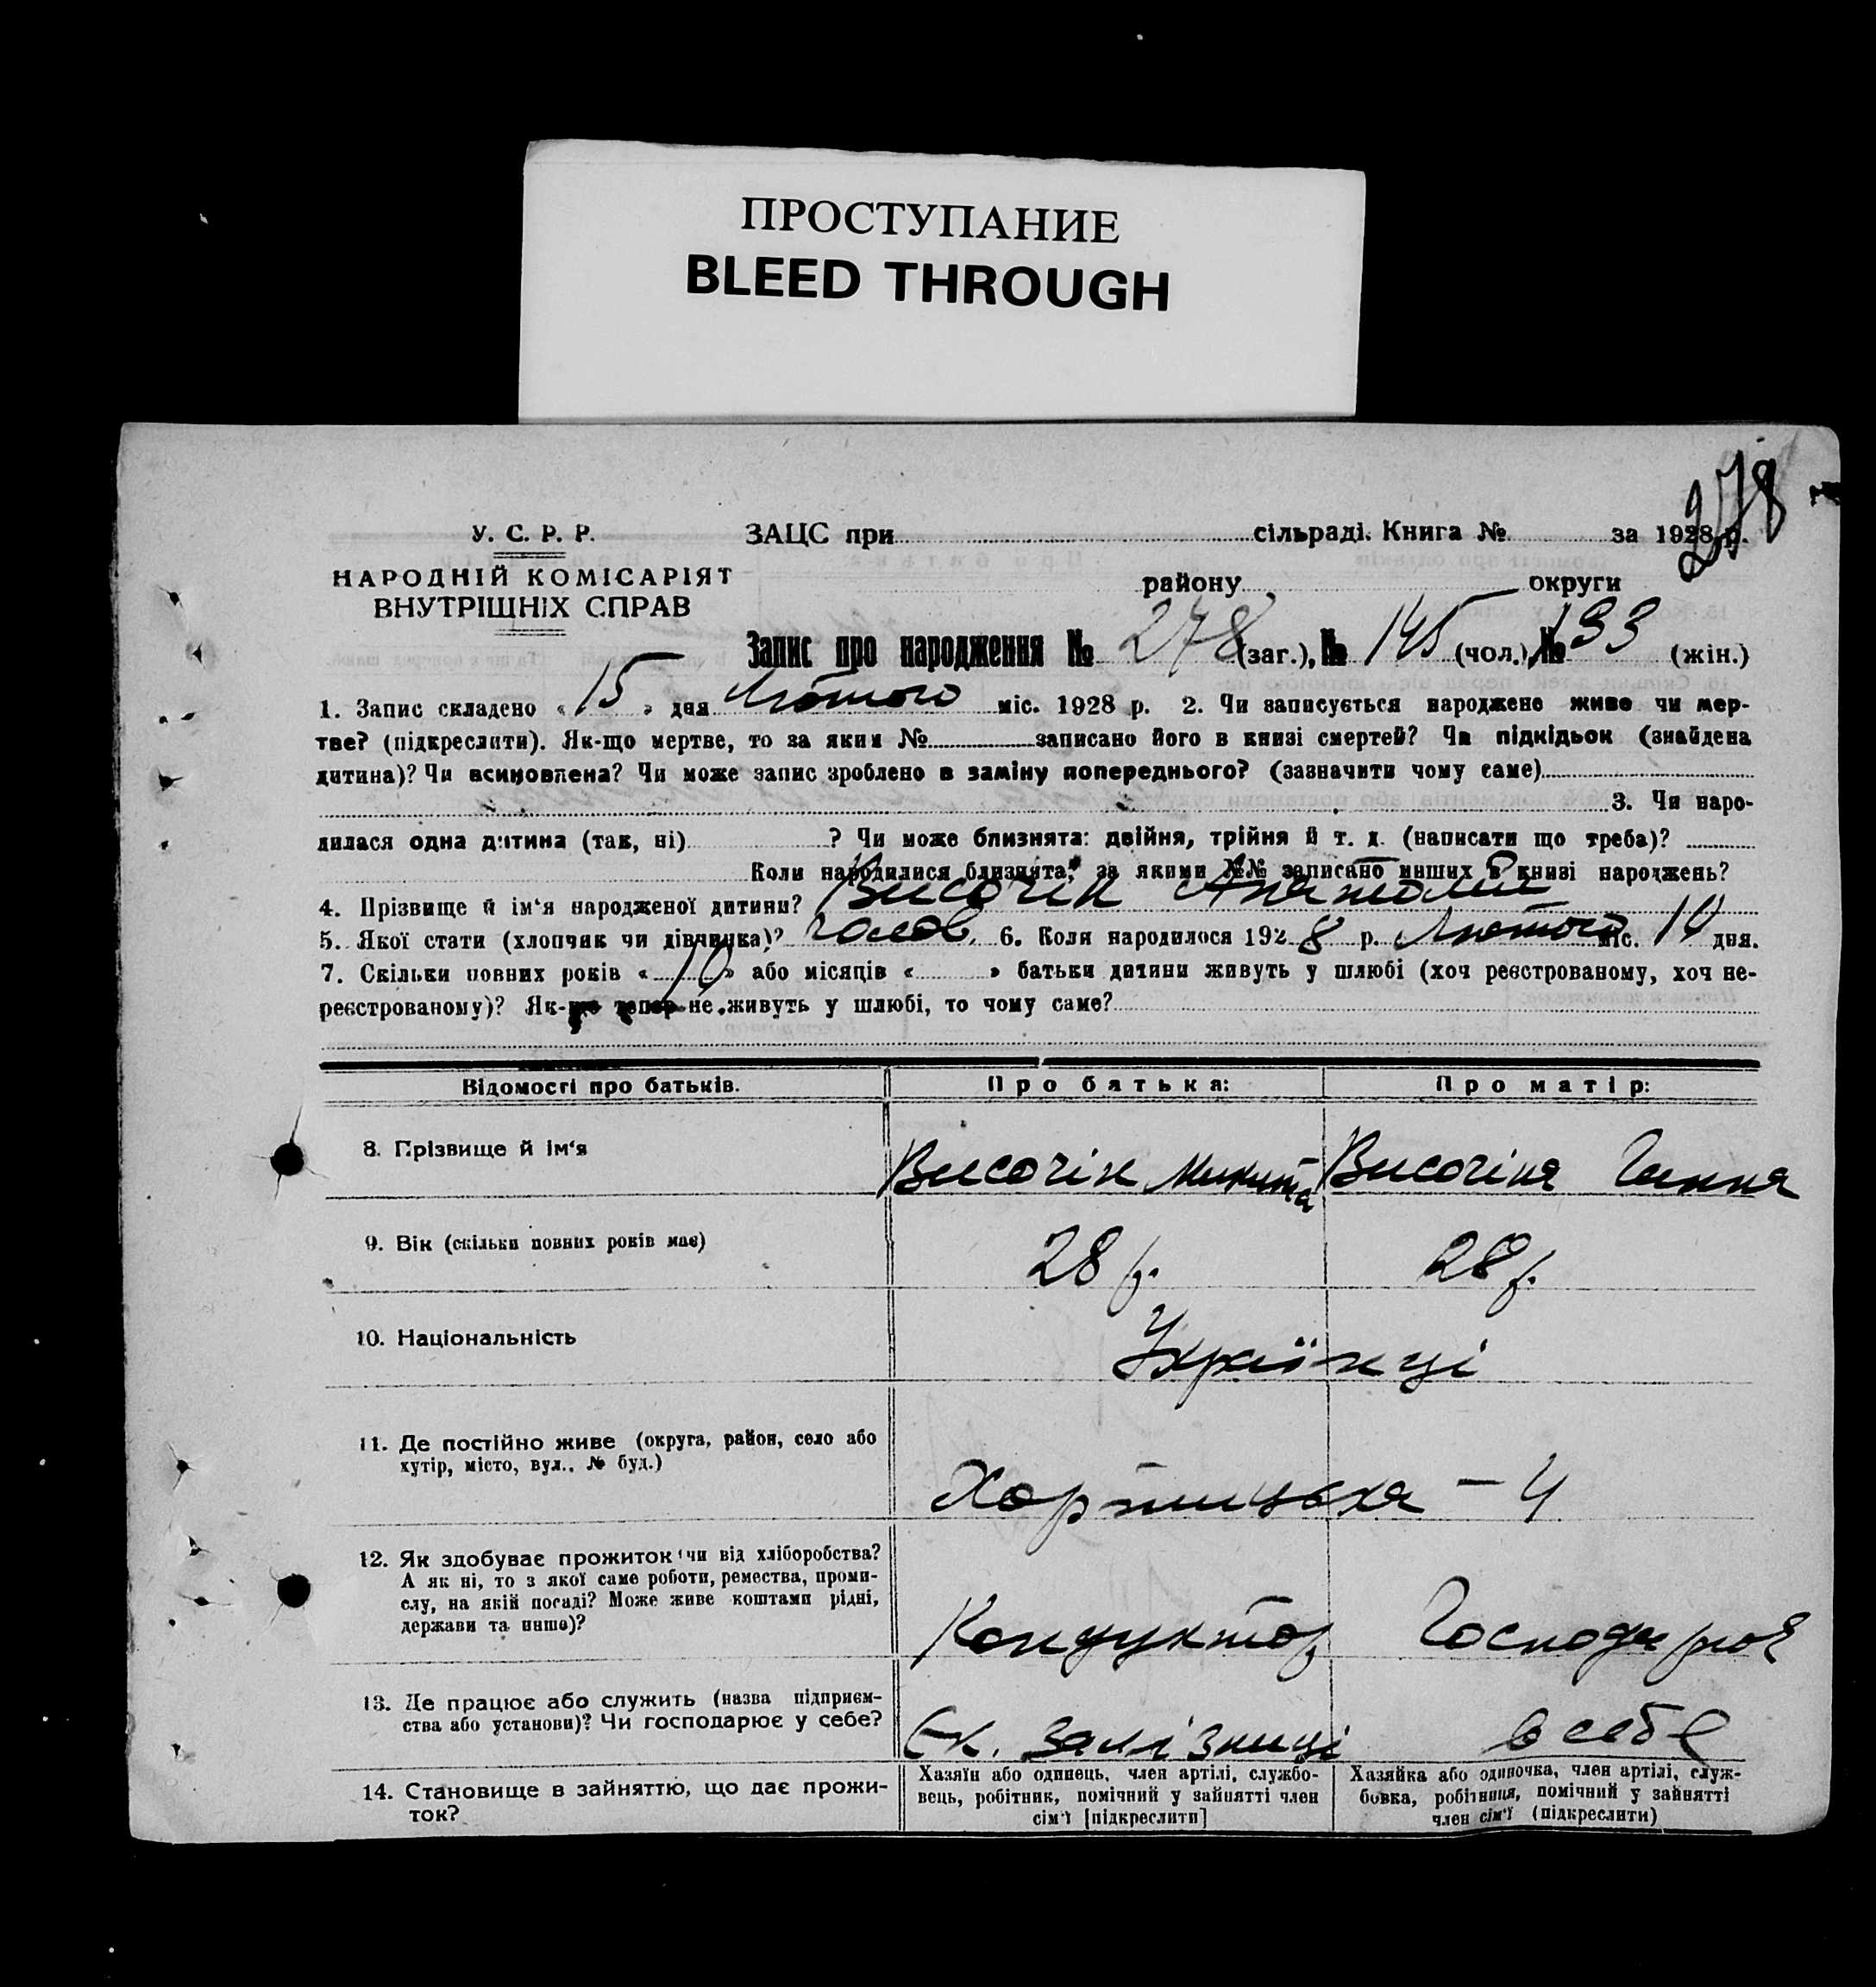 ПРОСТУПАНИЕ
BLEED THROUGH
278
У. С. Р. Р.
ЗАЦС при сільраді. Книга № за 1928 р.
НАРОДНІЙ КОМІСАРІЯТ
ВНУТРІШНІХ СПРАВ
району округи
Запис про народження № 278 (заг.), № 145 (чол.), № 133 (жін.)
1. Запис складено « 15 » дня Лютого міс. 1928 р. 2. Чи записується народжене живе чи мер-
тве? (підкреслити). Як-що мертве, то за яким № записано його в книзі смертей? Чи підкідьок (знайдена
дитина)? Чи всиновлена? Чи може запис зроблено в заміну попереднього? (зазначити чому саме)
3. Чи наро-
дилася одна дитина (так, ні) ? Чи може близнята: двійня, трійня й т. д. (написати що треба)?
Коли народилися близнята, за якими №№ записано инших в книзі народжень?
4. Прізвище й ім‘я народженої дитини? Височін Анатолий
5. Якої стати (хлопчик чи дівчинка)? чолов. 6. Коли народилося 1928 р. Лютого міс. 10 дня.
7. Скільки повних років « 10 » або місяців « » батьки дитини живуть у шлюбі (хоч реєстрованому, хоч не-
реєстрованому)? Як-що тепер не живуть у шлюбі, то чому саме?
Відомості про батьків. Про батька: Про матір:
8. Прізвище й ім‘я Височін Микита Височіна Ганна
9. Вік (скільки повних років має) 28 р. 28 р.
10. Національність Українці
11. Де постійно живе (округа, район, село або
хутір, місто, вул., № буд.)
Хортицька – 4
12. Як здобуває прожиток (чи від хліборобства?
А як ні, то з якої саме роботи, ремества, проми-
слу, на якій посаді? Може живе коштами рідні,
держави та инше)?
Кондуктор Господарює
13. Де працює або служить (назва підприєм-
ства або установи)? Чи господарює у себе?
Єк. залізниці в себе
14. Становище в зайняттю, що дає прожи-
ток?
Хазяїн або одинець, член артілі, службо-
вець, робітник, помічний у зайнятті член
сім‘ї [підкреслити]
Хазяйка або одиночка, член артілі, служ-
бовка, робітниця, помічний у зайнятті
член сім‘ї (підкреслити)